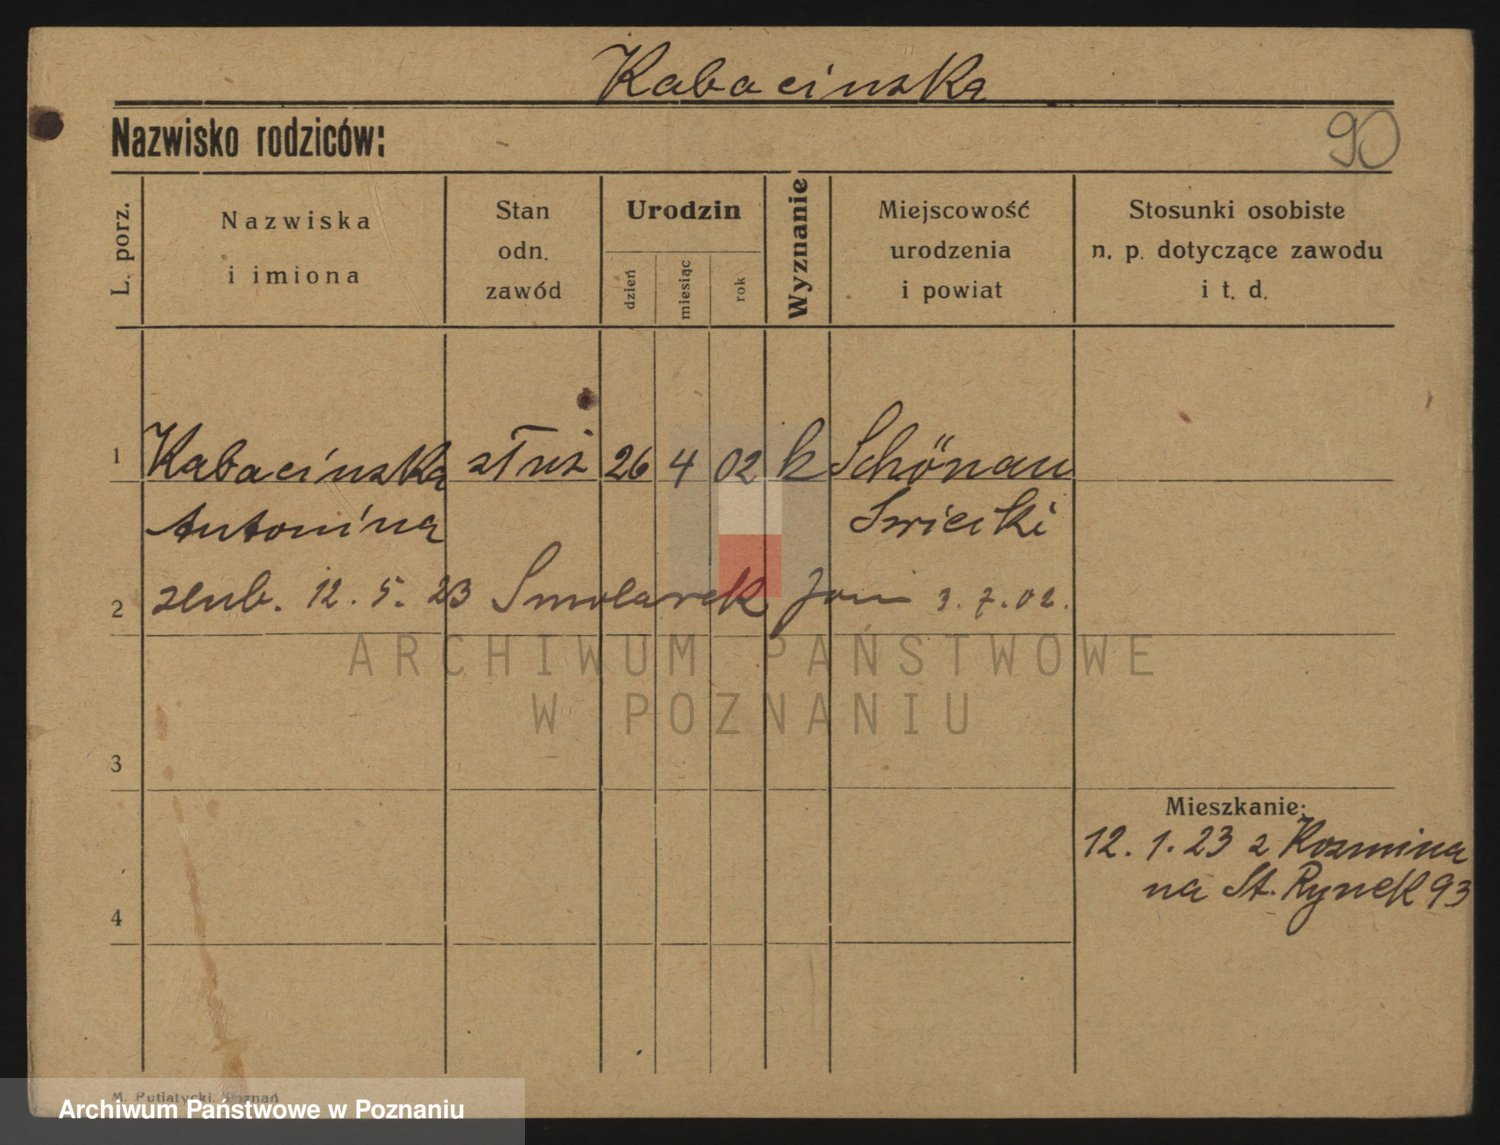 Kabacinska
Nazwisko rodziców:
90
L. porz.
Nazwiska
i imiona
Stan
odn.
zawód
Urodzin
dzień
miesiąc
rok
Wyznanie
Miejscowość
urodzenia
i powiat
Stosunki osobiste
n. p. dotyczące zawodu
i t. d.
1 Kabacinska służ 26 4 02 k Schönau
Antonina Swiecki
2 12. 5. 23 Smolarek 3. 7. 02.
ARCHIWUM PAŃSTWOWE
W POZNANIU
3
Mieszkanie:
12. 1. 23 z Kozmina
na St. Rynek 93
4
M. Putiatycki, Poznań
Archiwum Państwowe w Poznaniu